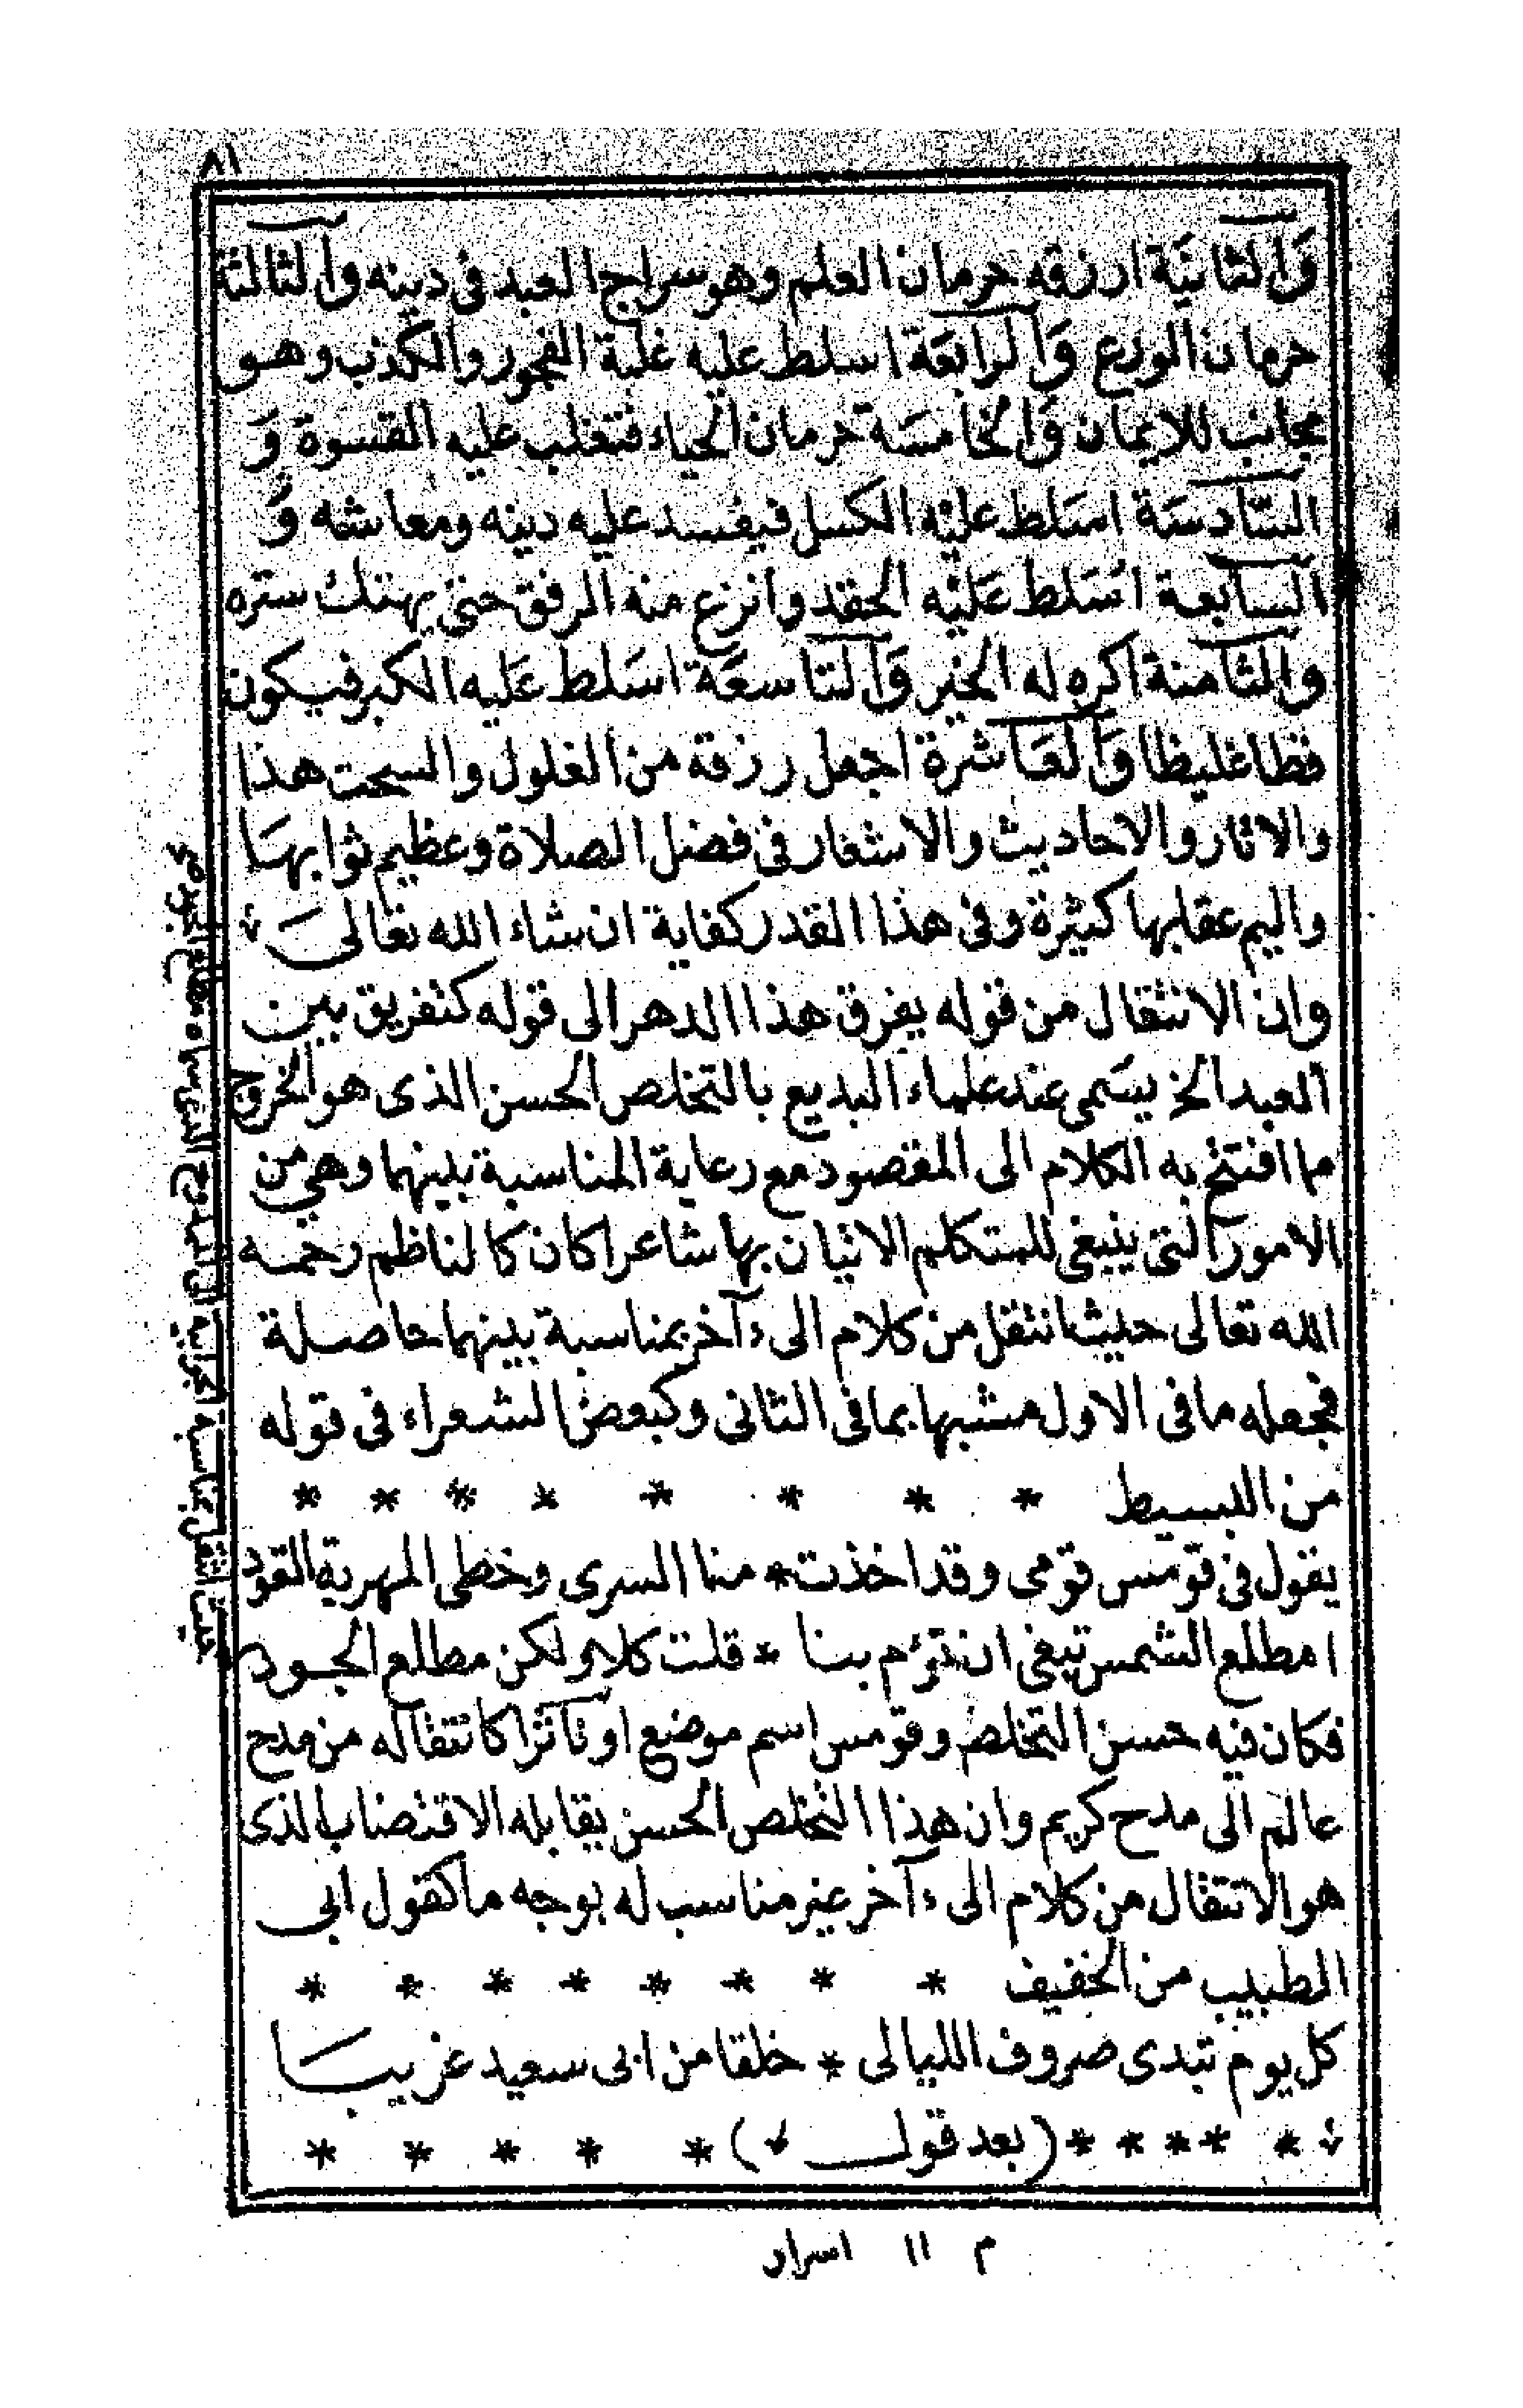 ٨١
وَالثانيَة ارزقه حرمان العلم وهو سراج العبد فى دينه والثالثة
حرمان الورع وَالرابعَة اسلط عليه غلبة الفجور والكذب وهو
مجانب للايمان وَالخامسَة حرمان الحياء فتغلب عليه القسوة وَ
السّادسَة اسَلط عليْه الكسل فيفسد عليه دينه ومعاشه وَ
السابعة اسَلط عَليْه الحقد وانزع منه الرفق حتى يهتك ستره
والثامنة اكره له الخير وَالتاسعَة اسَلط عَليه الكبر فيكون
فظا غليظا وَالعَاشرة اجعل رزقه من الغلول والسحت هذا
والاثار والاحاديث والاشعار فى فضل الصلاة وعظيم ثوابهَا
واليم عقابها كثيرة وفى هذا القدر كفاية ان شاء الله تعالىَ
وان الانتقال من قوله يفرق هذا الدهر الى قوله كتفريق بين
العبد الخ يسَمى عند علماء البديع بالتخلص الحسن الذى هو الخروج
مما افتتح به الكلام الى المقصود مع رعاية المناسبة بينهما وهى من
الامور التى ينبغى للمتكلم الاتيان بها شاعرا كان كالناظم رحمه
الله تعالى حيث انتقل من كلام الى ءآخر بمناسبة بينهما حاصلة
فجعله ما فى الاول مشبها بما فى الثانى وكبعض الشعراء فى قوله
من البسيط * * * * * * * *
يقول فى قومس قومى وقد اخذت * منا السرى وخطى المهرية القود
امطلع الشمس تبغى ان تؤم بنا * قلت كلا ولكن مطلع الجود
فكان فيه حسن التخلص وقومس اسم موضع او ناثرا كانتقاله من مدح
عالم الى مدح كريم وان هذا التخلص الحسن يقابله الاقتضاب الذى
هو الانتقال من كلام الى ءآخر غير مناسب له بوجه ما كقول ابى
الطبيب من الخفيف * * * * * * * *
كل يوم تبدى صروف الليالى * خلقا من ابى سعيد غريبَا
* * * * * (بعد قوله) * * * * *
م ١١ اسرار